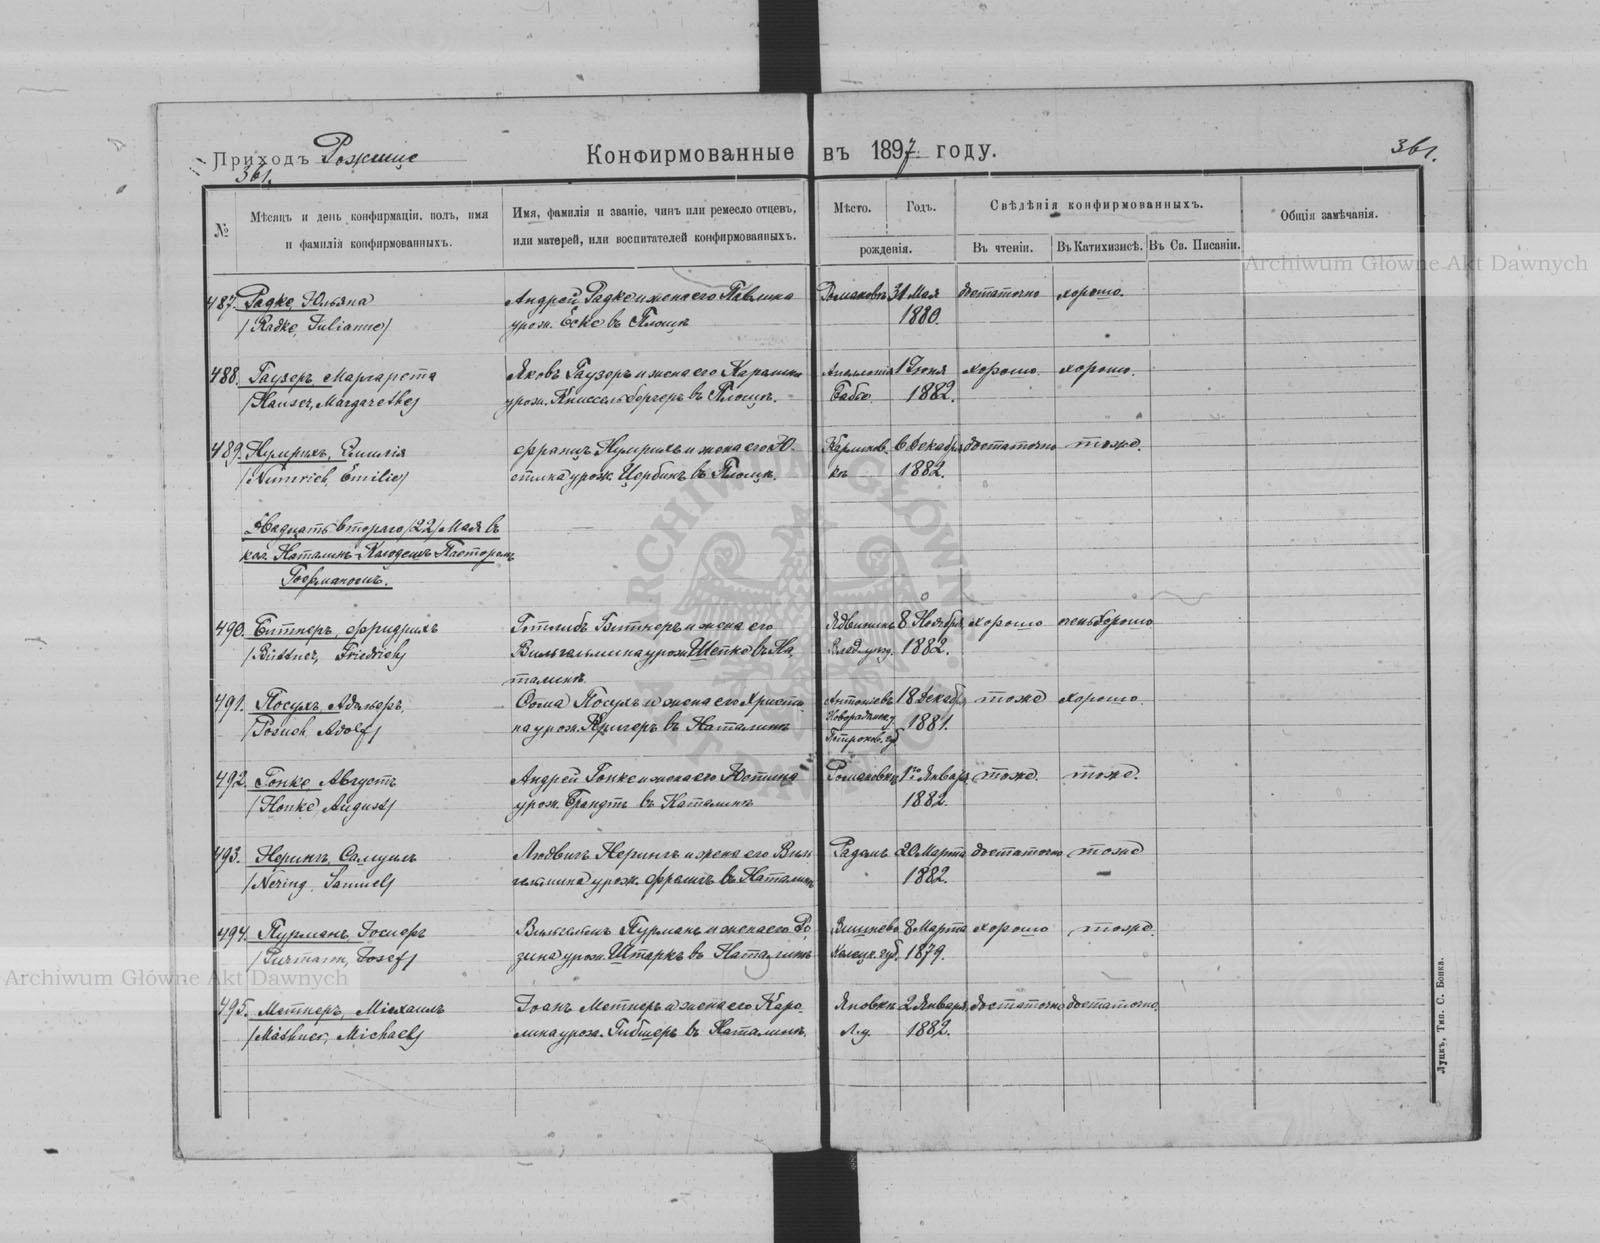 Приходъ Рожище
361.
Конфирмованные въ 1897 году.
361.
№
Мѣсяцъ и день конфирмаціи, полъ, имя
и фамилія конфирмованныхъ.
Имя, фамилія и званіе, чинъ или ремесло отцевъ,
или матерей, или воспитателей конфирмованныхъ.
Мѣсто.
Годъ.
рожденія.
Свѣдѣнія конфирмованныхъ.
Въ чтеніи.
Въ Катихизисѣ.
Въ Св. Писаніи.
Общія замѣчанія.
487. Радке, Юльяна
/Radke, Julianne/
Андрей Радке и жена его Павлина
урож. Еске въ Плоцк
Романовъ 31 Мая достаточно хорошо.
1880.
488. Гаузеръ Маргарета
/Hauser, Margarethe/
Яковъ Гаузеръ и жена его Каролина
урож. Книссельбергеръ въ Плоцк.
1 Іюня хорошо. хорошо.
1882.
489. Нумрихъ, Эмилія
/Numrich, Emilie/
Францъ Нумрихъ и жена его Ю-
стина урож. Цербинъ въ Плоцк.
6 Декабря достаточно тоже.
1882.
Двадцать втораго /22/ Мая въ
кол. Наталинъ Пасторомъ
Гофманомъ.
490. Битнеръ, Фридрихъ
/Büttner, Friedrich/
Готлибъ Битнеръ и жена его
Вильгельмина урож. Шепке въ На-
талинѣ
8 Ноября хорошо очень хорошо
1882.
491. Посухъ, Адольфъ,
/Posuch, Adolf/
Ѳома Посухъ и жена его Христи-
на урож. Кригеръ въ Наталинѣ
Антоніевъ 18 Декабр. тоже хорошо.
Новорадомск. у. 1881.
Петрок. губ.
492. Гонке Августъ
/Honke, August/
Андрей Гонке и жена его Юстина
урож. Брандтъ въ Наталинѣ
Романовкѣ 1го Января тоже. тоже.
1882.
493. Нерингъ, Самуилъ
/Nering, Samuel/
Людвигъ Нерингъ и жена его Вил-
гельмина урож. въ Наталинѣ
Радомъ 20 Марта достаточно тоже
1882.
494. Пурманъ, Іосифъ
/Purmann, Josef/
Вильгельмъ Пурманъ и жена его Ро-
зина урож. Штаркъ въ Наталинѣ
Вишнево 8 Марта хорошо тоже.
Келецк. губ. 1879.
495. Метнеръ, Михаилъ
/Mathner, Michael/
Іоанъ Метнеръ и жена его Каро-
лина урож. Гибшеръ въ Наталинѣ.
Яновкѣ 2 Января достаточно достаточно.
Л. у. 1882.
Луцкъ, Тип. С. Бонка.
Archiwum Główne Akt Dawnych
Archiwum Główne Akt Dawnych